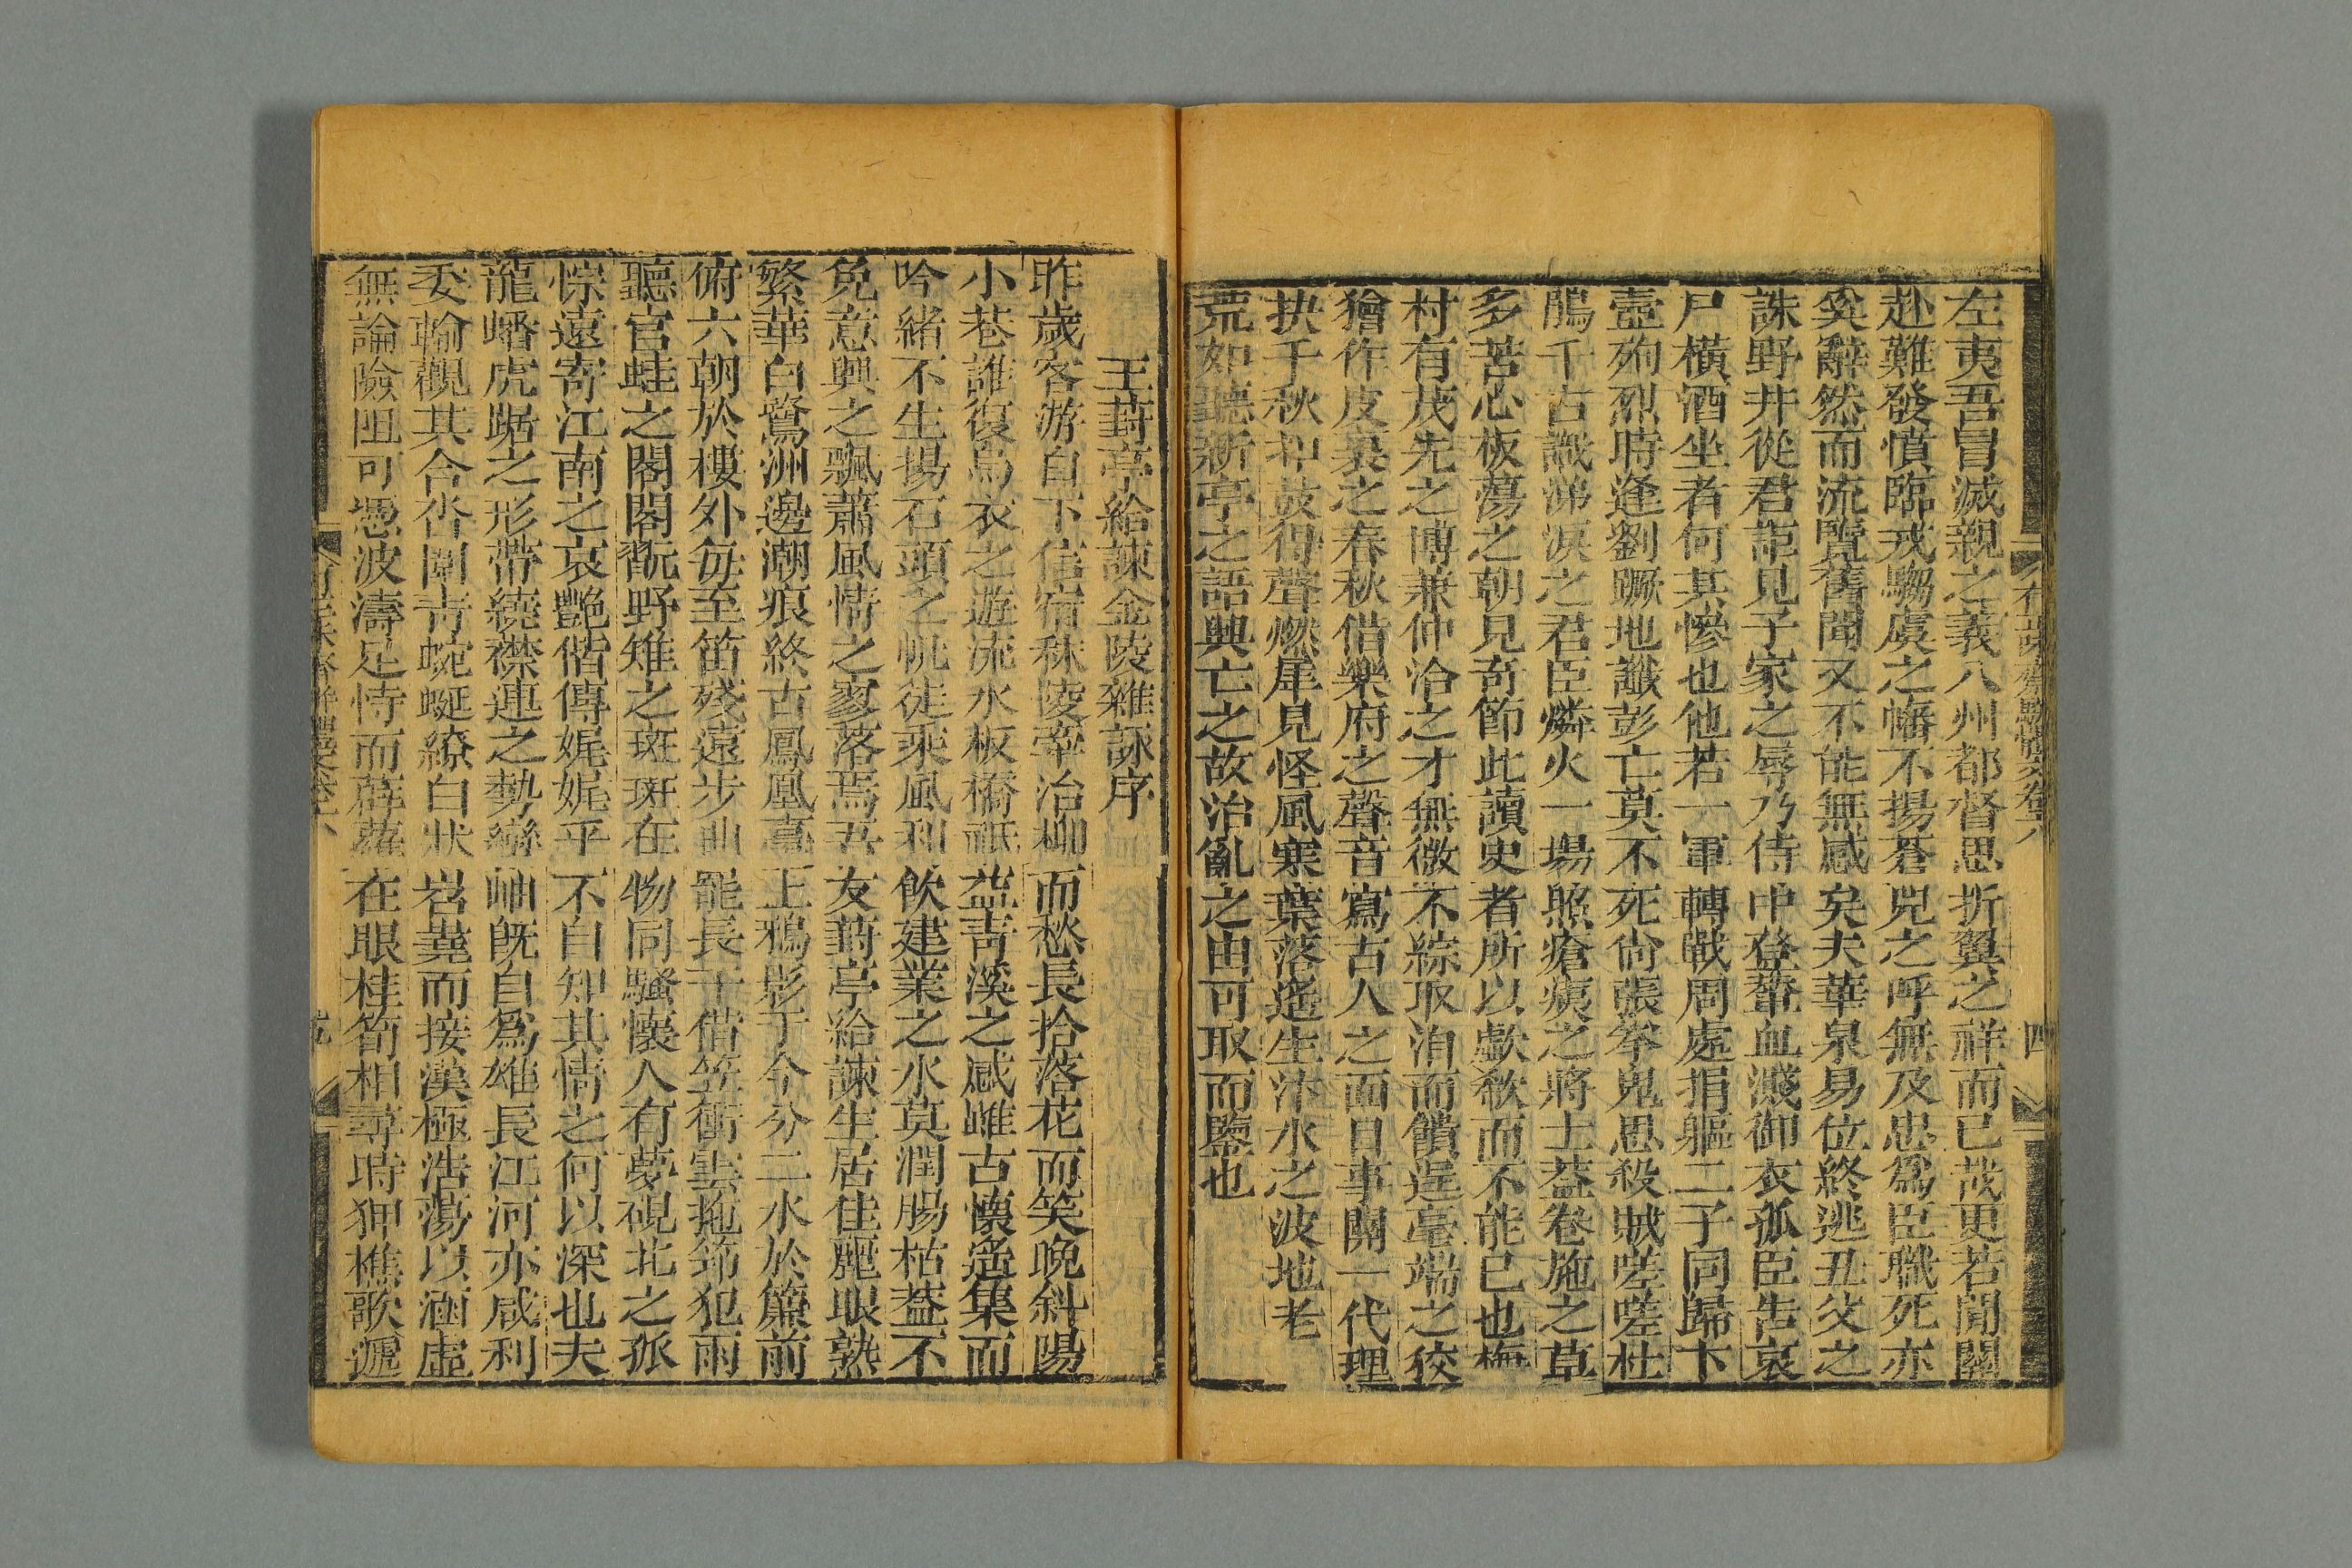 有正味齋駢體文卷八
四
左夷吾冒滅親之義八州都督思折翼之祥而已哉更若聞關
赴難發憤臨戎騶虞之幡不揚蒼兕之呼無及忠爲臣職死亦
奚辭然而流覽舊聞又不能無感矣夫華泉易位終逃丑父之
誅野井從君詎見子家之辱乃侍中登輦血濺御衣孤臣告哀
尸橫酒坐者何其慘也他若一軍轉戰周處捐軀二子同歸卞
壼殉烈時逢劉蹶地讖彭亡莫不死尙張拳鬼思殺賊嗟嗟杜
鵑千古識涕淚之君臣燐火一場照瘡痍之將士葢卷施之草
多苦心板蕩之朝見奇節此讀史者所以歔欷而不能已也梅
村有茂先之博兼仲洽之才無微不綜取洎而饋逞毫端之狡
獪作皮裏之春秋借樂府之聲音寫古人之面目事關一代理
抉千秋和鼓得聲燃犀見怪風寒葉落遙生汴水之波地老
荒如聽新亭之語興亡之故治亂之由可取而鑒也
王葑亭給諫金陵雜詠序
昨歲客游白下信宿秣陵牽冶柳而愁長拾落花而笑晚斜陽
小巷誰復烏衣之遊流水板橋祇益靑溪之感雖古懷遙集而
吟緖不生揚石頭之帆徒乘風利飮建業之水莫潤腸枯葢不
免意興之飄蕭風情之寥落焉吾友葑亭給諫生居佳麗眼熟
繁華白鷺洲邊潮痕終古鳳凰臺上鴉影于今分二水於簾前
俯六朝於樓外每至笛殘遠步曲罷長干借笠衝雲拖筇犯雨
聽官蛙之閣閣翫野雉之斑斑在物同騷懷人有夢硯北之孤
悰遠寄江南之哀艷偕傳娓娓乎不自知其情之何以深也夫
龍蟠虎踞之形帶繞襟連之勢巒岫旣自爲雄長江河亦咸利
委輸觀其合沓圍靑蜿蜒繚白狀岧嶤而接漢極浩蕩以涵虛
無論險阻可憑波濤足恃而薜蘿在眼桂筍相尋時狎樵歌遞
有正味齋駢體文卷八